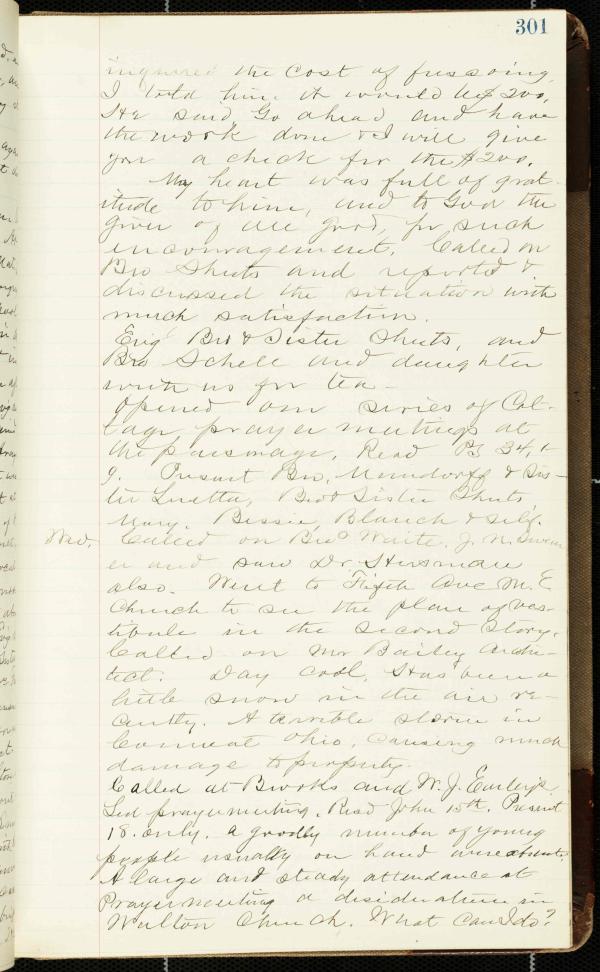 301
inquired the cost of frescoing.
I told him it would be $200.
He said Go ahead and have
the work done & I will give
you a check for the $200.
My heart was full of grat-
itude to him, and to God the
giver of all good, for such
encouragement. Called on
Bro Shuts and reported &
discussed the situation with
much satisfaction.
Eve'g Bro & Sister Shuts, and
Bro Schell and daughter
with us for tea -
Opened our series of Cot-
tage prayer meetings at
the parsonage. Read Ps 34, 1-
9. Present Bro. Mundorff & Sis-
ter Luetta, Bro & Sister Shuts
Mary, Bessie, Blanch & self.
Wed. Called on Bro Waite, J. N.
er and saw Dr.
also. Went to Fifth Ave M. E.
Church to see the plan of ves-
tibule in the second story.
Called on Mr Bailey Archi-
tect. Day cool, Has been a
little snow in the air re-
cently. A terrible storm in
Conneaut Ohio, causing much
damage to property.
Called at Brooks and W. J.
Led prayermeeting. Read John 15th. Present
18. only. a goodly number of young
people usually on hand were absent.
A large and steady attendance at
Prayermeeting a desideratum in
Walton Church. What can I do?